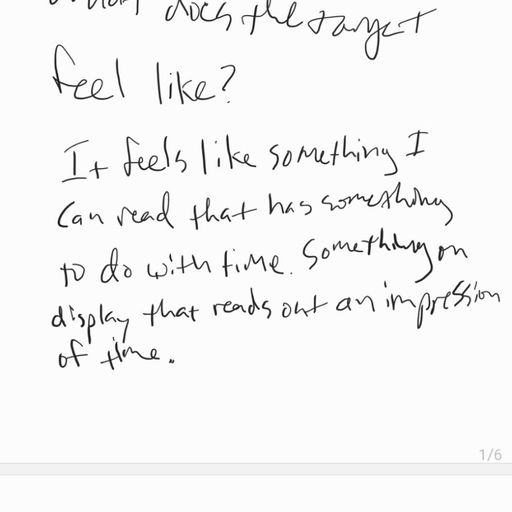 What does the target
feel like?
It feels like something I
can read that has something
to do with time. Something on
display that reads out an impression
of time.
1/6